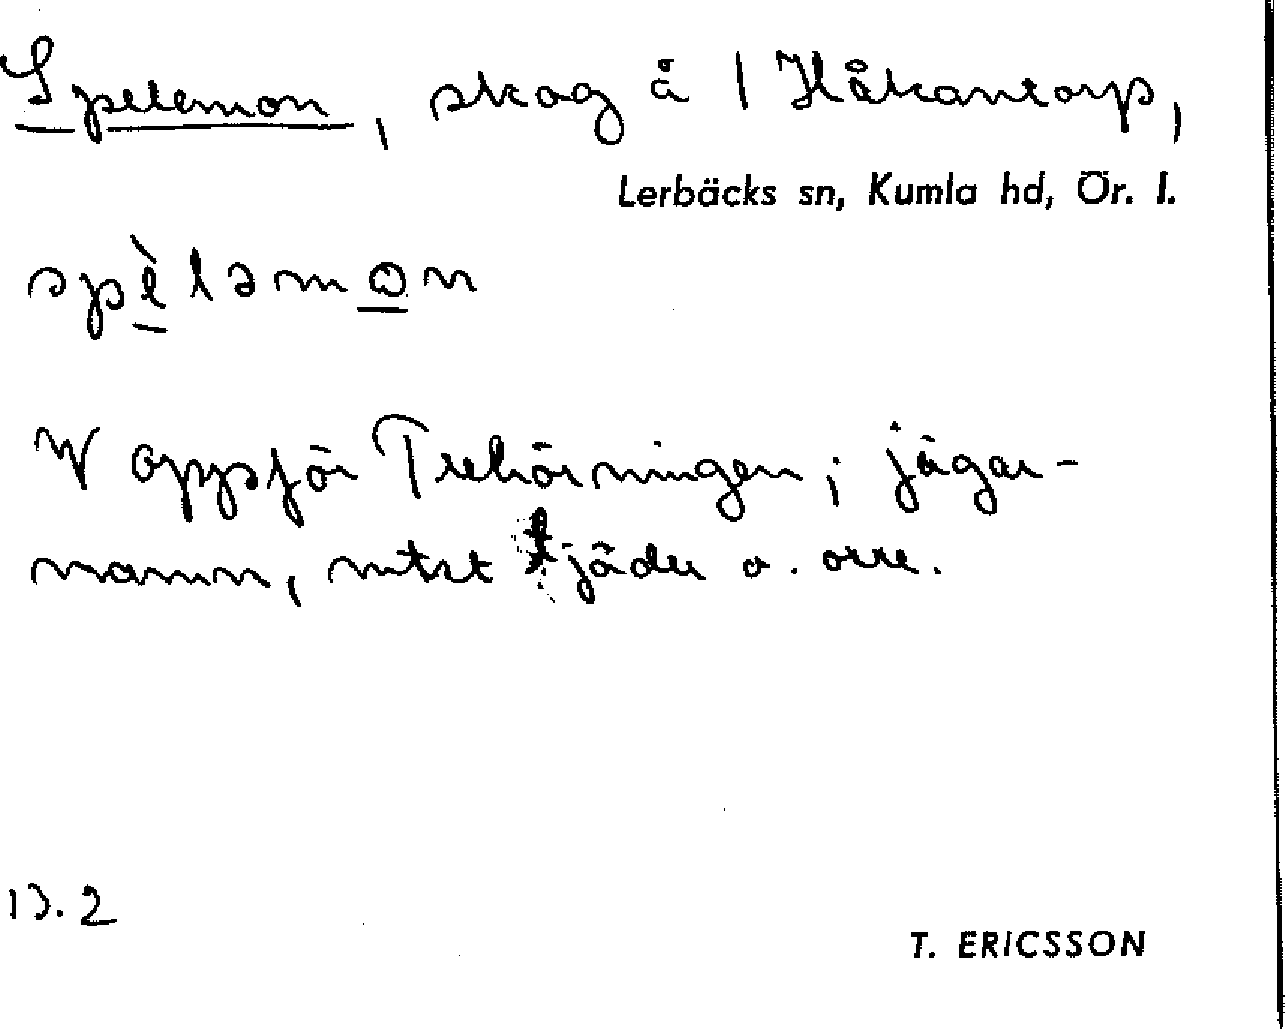 Spelemon, skog å 1 Håkantorp,
Lerbäcks sn, Kumla hd, Ör. l.
spèləmon
W oppför Trehörningen; jägar-
namn, mtrt tjäder o. orre.
D. 2
T. ERICSSON